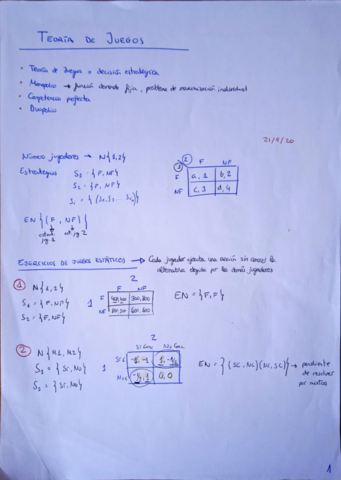 TEORÍA DE JUEGOS
• Teoría de Juegos → decisión estratégica
• Monopolio → función demanda fija, problema de maximización individual
• Competencia perfecta
• Duopolio
21/9/20
Número jugadores → N{1,2}
Estrategias S1 = {F, NF}
S2 = {F, NF}
2
F NF
1 F a, 1 b, 2
NF c, 3 d, 4
EN {(F, NF)}
EJERCICIOS DE JUEGOS ESTÁTICOS → Cada jugador ejecuta una acción sin conocer la
alternativa elegida por los demás jugadores
1 N{1,2}
S1 = {F, NF}
S2 = {F, NF}
2
F NF
1 F
NF
EN = {F, F}
2
S1 = {Sc, Nc}
S2 = {Sc, Nc}
2
1
0, 0
EN = {(Sc, Nc)(Nc, Sc)} → pendiente
de resolver
por mixtas
1